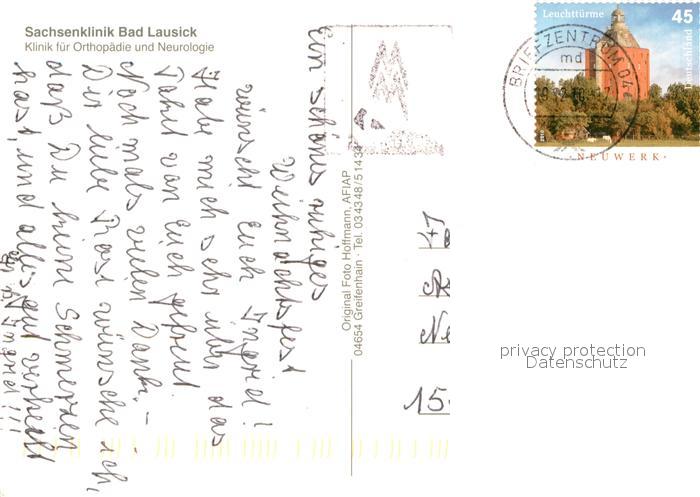 Sachsenklinik Bad Lausick
Klinik für Orthopädie und Neurologie
Ein schönes ruhiges
Weihnachtsfest
wünscht Euch Ingrid!
Habe mich sehr über das
Paket von Euch gefreut.
Nochmals vielen Dank. –
Dir liebe Rose wünsche ich,
daß Du keine Schmerzen
hast, und alles gut verheilt
Ingrid!!!
Original Foto Hoffmann, AFIAP
04654 Greifenhain · Tel. 034348/51434
Leuchttürme
45
Deutschland
·NEUWERK·
BRIEFZENTRUM 04
md
15
privacy protection
Datenschutz